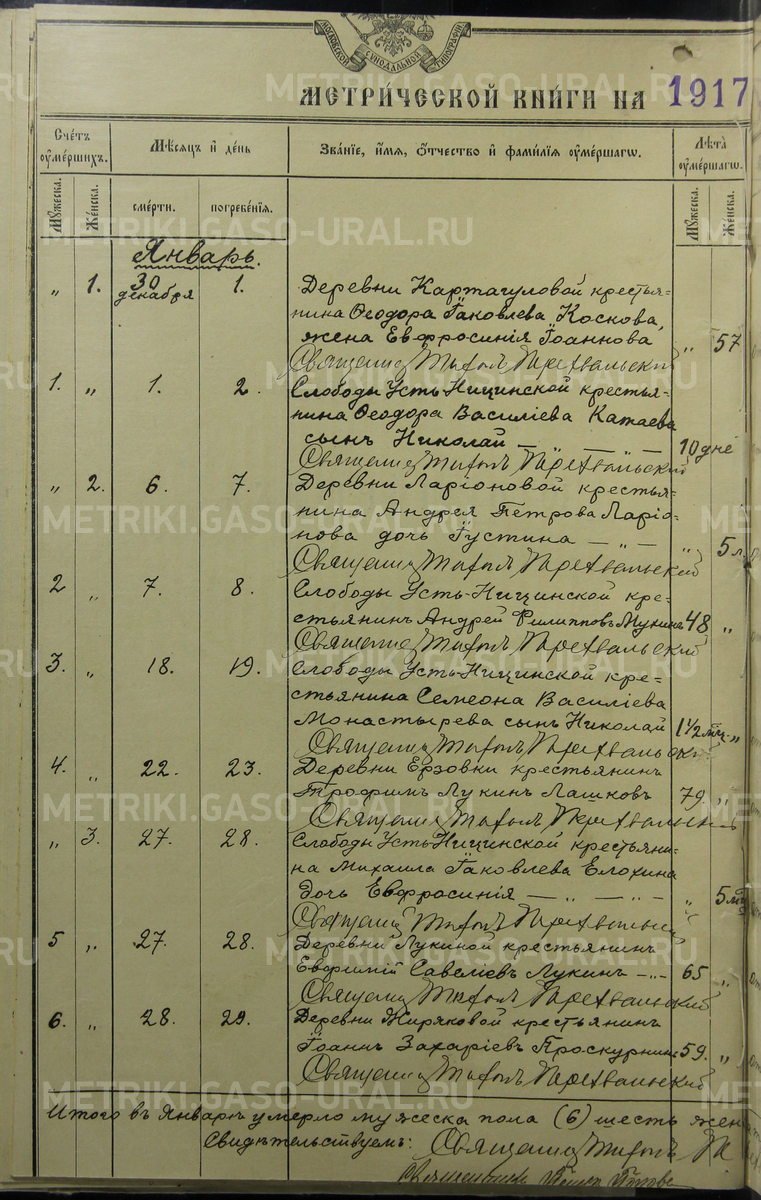 МОСКОВСКОЙ СУНОДАЛЬНОЙ ТИПОГРАФІИ
МЕТРИ́ЧЕСКОЙ КНИ́ГИ НА 1917
Счетъ ᲂумершихъ.
Мѣсяцъ и день
Званіе, имя, отчество и фамилія ᲂумершагѡ.
Лѣта ᲂумершагѡ.
Мужеска. Женска. смерти. погребенія. Мужеска. Женска.
Январь.
„ 1. 30 декабря 1. Деревни Картагуловой крестья-
нина Ѳеодора Іаковлева Коскова,
жена Евфросинія Іоаннова „ 57
Священ Тихон Перехвальский
1. „ 1. 2. Слободы Усть-Ницинской крестья-
нина Ѳеодора Василіева Катаева
сынъ Николай 10 дне
Священ Тихон Перехвальский
„ 2. 6. 7. Деревни Ларіоновой крестья-
нина Андрея Петрова Ларіо-
нова дочь Іустина — „ — „ 5 л
Священ Тихон Перехвальский
2 „ 7. 8. Слободы Усть-Ницинской кре-
стьянинъ Андрей Филипповъ Мукинъ 48 „
Священ Тихон Перехвальский
3. „ 18. 19. Слободы Усть-Ницинской кре-
стьянина Семеона Василіева
Монастырева сынъ Николай 1½ мѣс „
Священ Тихон Перехвальский
4. „ 22. 23. Деревни Ерзовки крестьянинъ
Трофимъ Лукинъ Лашковъ 79 „
Священ Тихон Перехвальский
„ 3. 27. 28. Слободы Усть-Ницинской крестьяни-
на Михаила Іаковлева Елохина
дочь Евфросинія — „ — „ — „ 5 мѣ
Священ Тихон Перехвальский
5 „ 27. 28. Деревни Лукиной крестьянинъ
Евфимій Савеліевъ Лукинъ — „ — 65 „
Священ Тихон Перехвальский
6. „ 28. 29. Деревни Жиряковой крестьянинъ
Іоаннъ Захаріевъ Проскурнинъ 59. „
Священ Тихон Перехвальский
Итого въ Январѣ умерло мужеска пола (6) шесть жен
Свидѣтельствуемъ: Священ Тихон Пе
METRIKI.GASO-URAL.RU